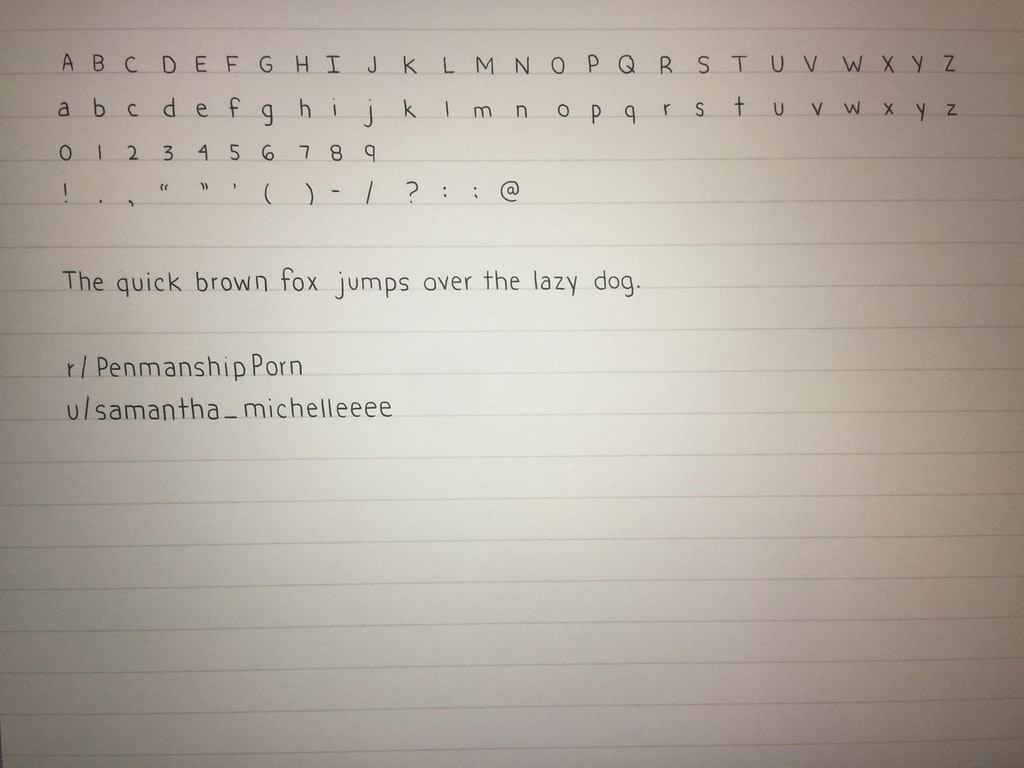 A B C D E F G H I J K L M N O P Q R S T U V W X Y Z
a b c d e f g h i j k l m n o p q r s t u v w x y z
0 1 2 3 4 5 6 7 8 9
! . , “ ” ' ( ) - / ? : ; @
The quick brown fox jumps over the lazy dog.
r/PenmanshipPorn
u/samantha_michelleeee